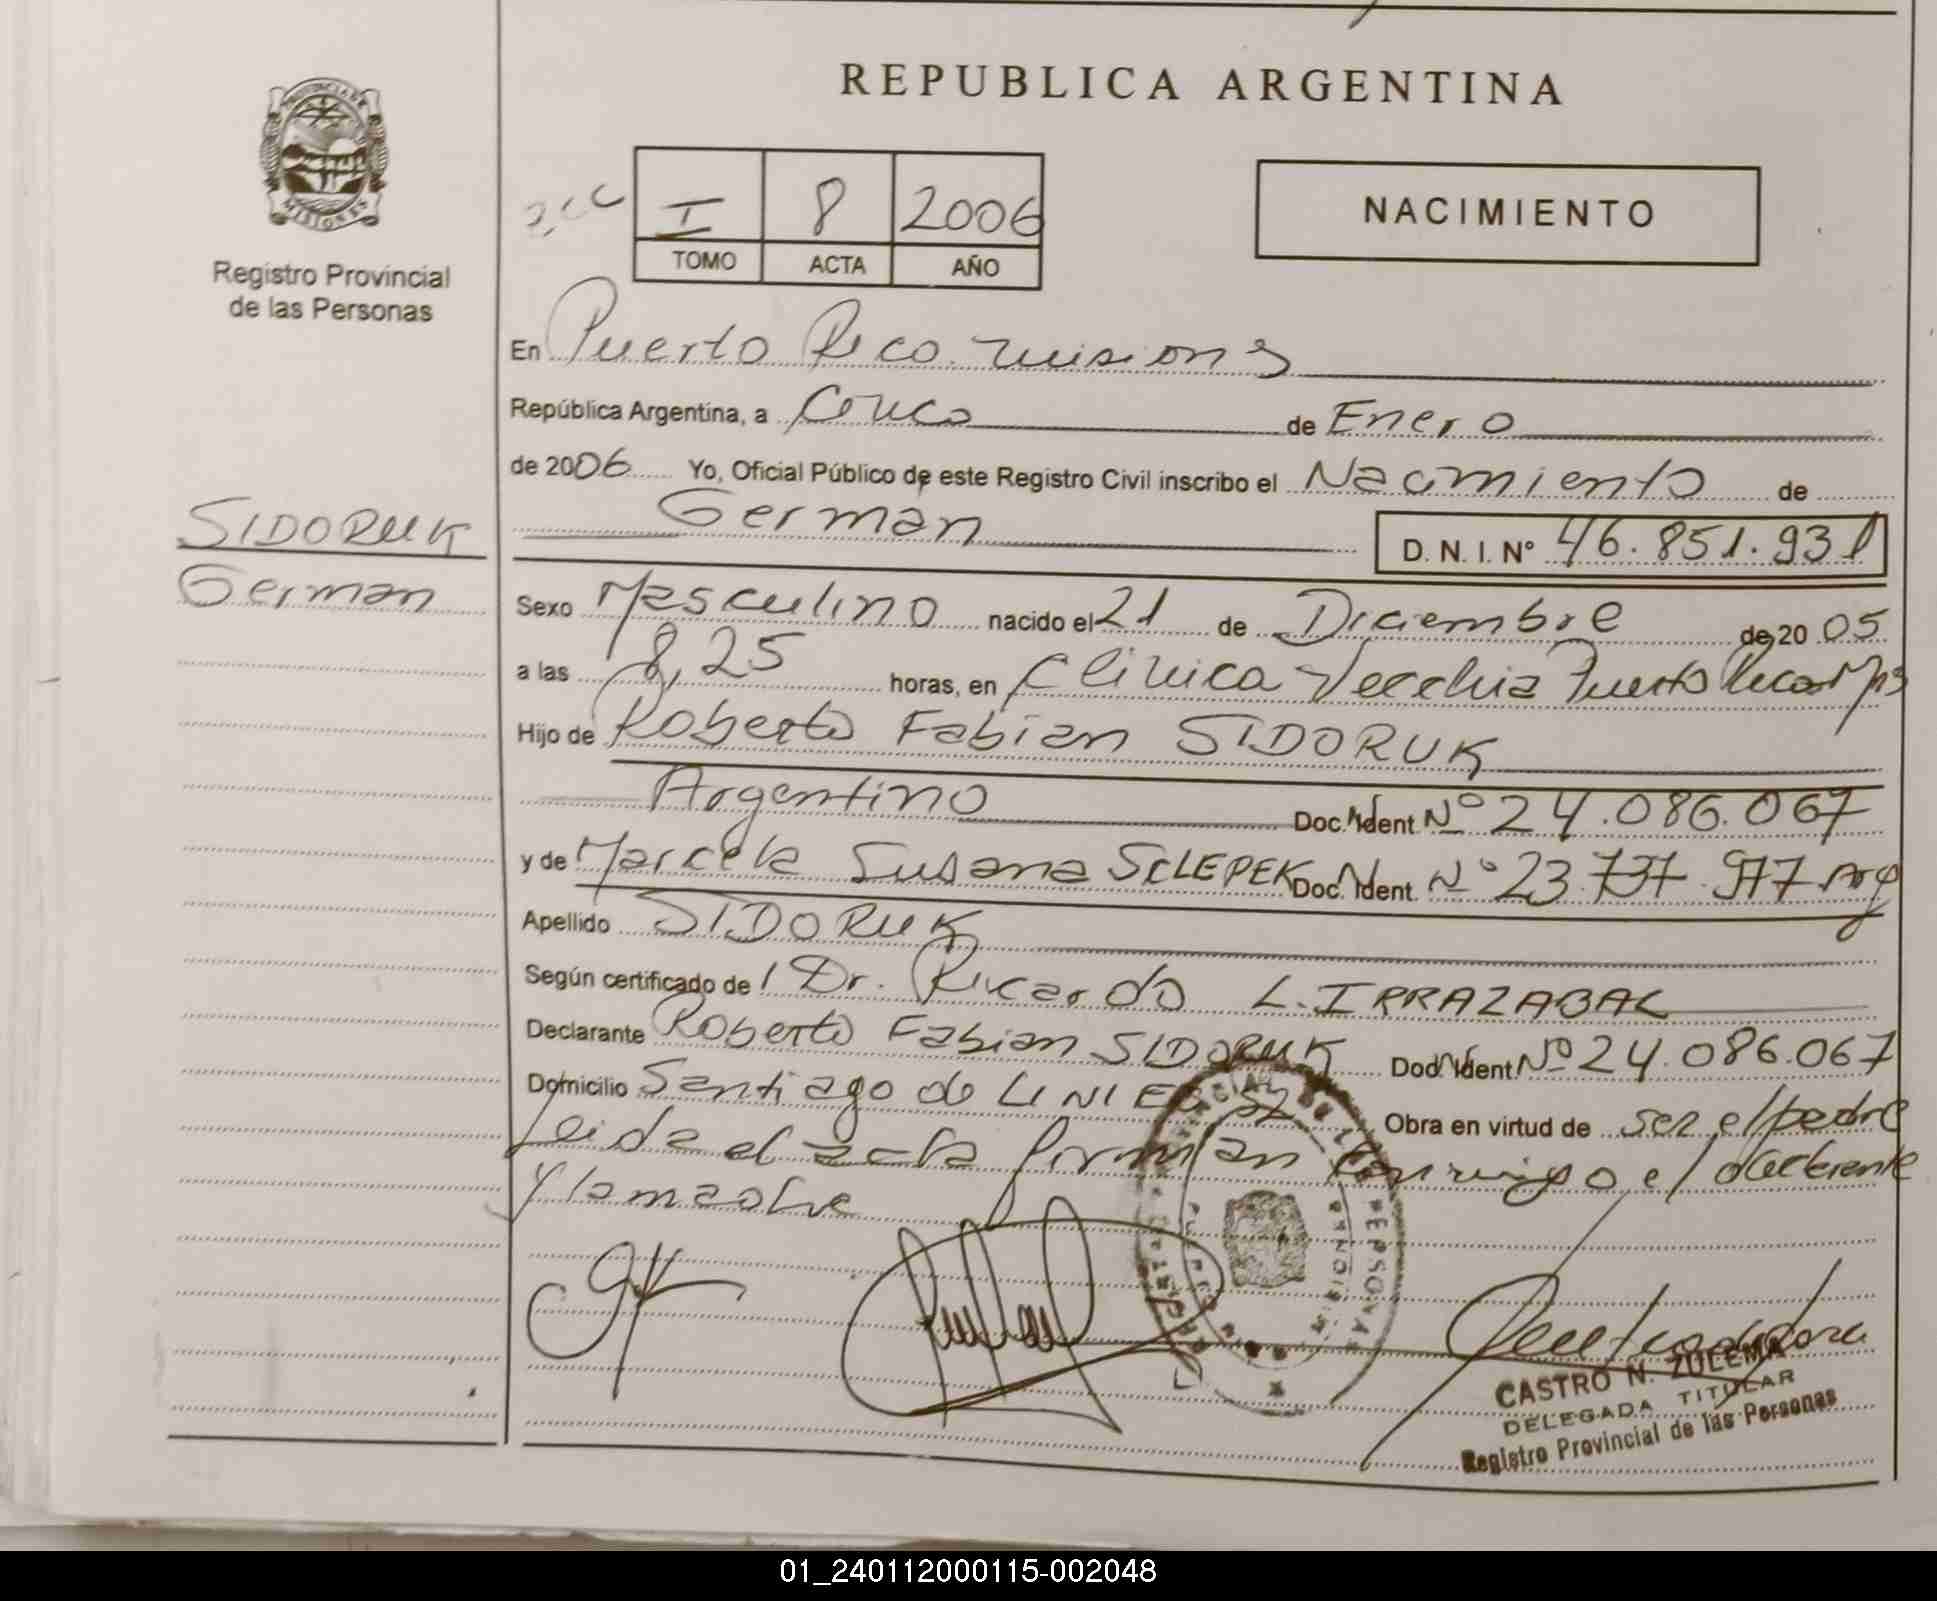 REPUBLICA ARGENTINA
PROVINCIA DE
MISIONES
Registro Provincial
de las Personas
I 8 2006
TOMO ACTA AÑO
NACIMIENTO
En Puerto Rico. Misiones
República Argentina, a Cinco de Enero
de 2006 Yo, Oficial Público de este Registro Civil inscribo el Nacimiento de
German D. N. I. Nº 46.851.931
SIDORUK
German
Sexo Masculino nacido el 21 de Diciembre de 20 05
a las 8,25 horas, en Clinica Vecchia Puerto Rico Mns
Hijo de Roberto Fabian SIDORUK
Argentino Doc. Ident Nº 24.086.067
y de Marcela Susana SCLEPEK Doc. Ident. Nº 23.737.977 Arg
Apellido SIDORUK
Según certificado de l Dr. Ricardo L. IRRAZABAL
Declarante Roberto Fabian SIDORUK Doc. Ident Nº 24.086.067
Domicilio Santiago de LINIERS Obra en virtud de ser el padre
Leida el acta firman conmigo el declarante
y la madre
CASTRO N. ZULEMA
DELEGADA TITULAR
Registro Provincial de las Personas
01_240112000115-002048